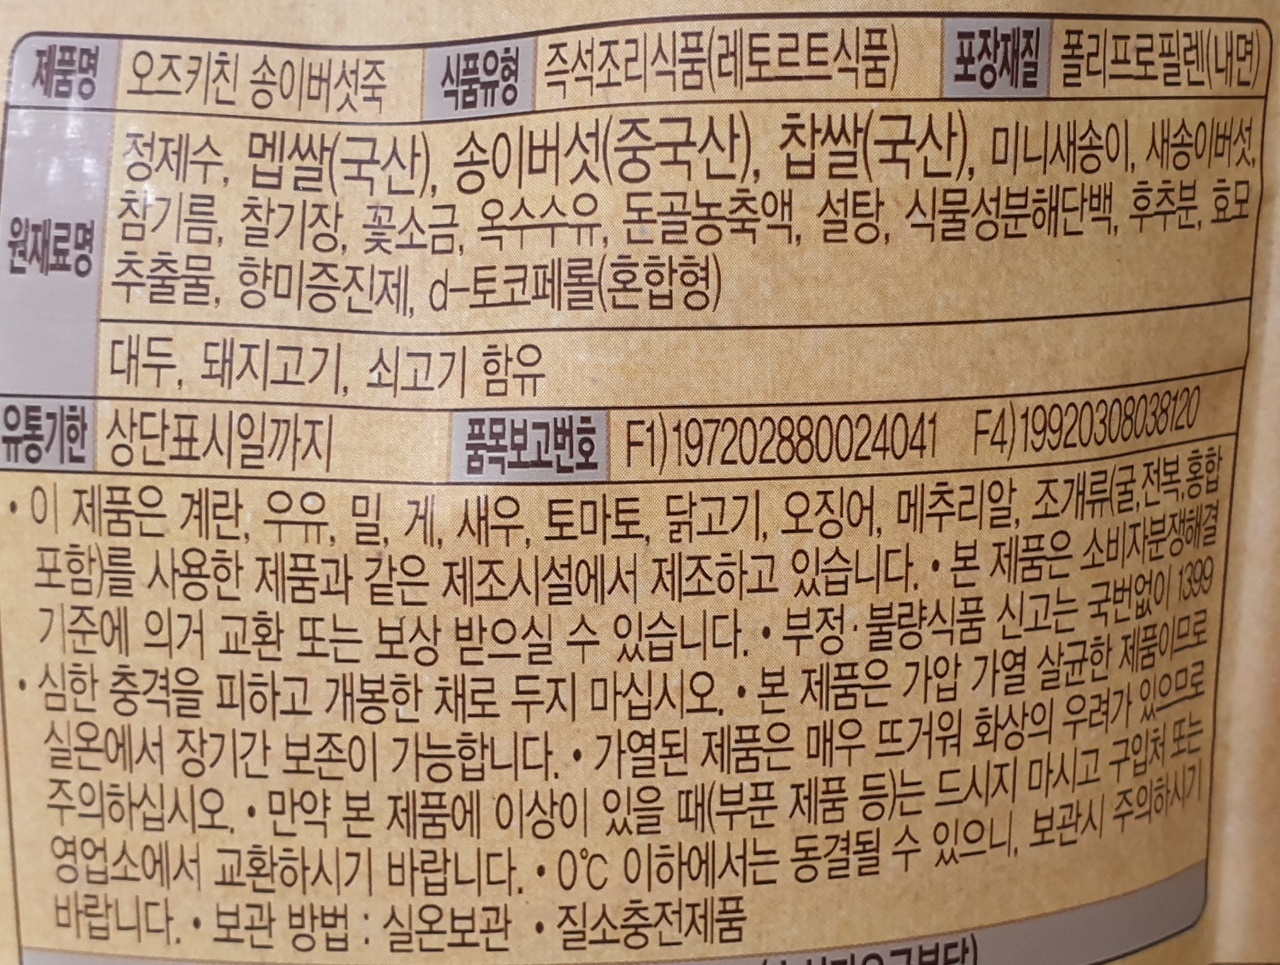 제품명 오즈키친 송이버섯죽 식품유형 즉석조리식품(레토르트식품) 포장재질 폴리프로필렌(내면)
원재료명 정제수, 멥쌀(국산), 송이버섯(중국산), 찹쌀(국산), 미니새송이, 새송이버섯,
참기름, 찰기장, 꽃소금, 옥수수유, 돈골농축액, 설탕, 식물성분해단백, 후추분, 효모
추출물, 향미증진제, d-토코페롤(혼합형)
대두, 돼지고기, 쇠고기 함유
유통기한 상단표시일까지 품목보고번호 F1)197202880024041 F4)19920308038120
• 이 제품은 계란, 우유, 밀, 게, 새우, 토마토, 닭고기, 오징어, 메추리알, 조개류(굴,전복,홍합
포함)를 사용한 제품과 같은 제조시설에서 제조하고 있습니다. • 본 제품은 소비자분쟁해결
기준에 의거 교환 또는 보상 받으실 수 있습니다. • 부정·불량식품 신고는 국번없이 1399
• 심한 충격을 피하고 개봉한 채로 두지 마십시오. • 본 제품은 가압 가열 살균한 제품이므로
실온에서 장기간 보존이 가능합니다. • 가열된 제품은 매우 뜨거워 화상의 우려가 있으므로
주의하십시오. • 만약 본 제품에 이상이 있을 때(부푼 제품 등)는 드시지 마시고 구입처 또는
영업소에서 교환하시기 바랍니다. • 0℃ 이하에서는 동결될 수 있으니, 보관시 주의하시기
바랍니다. • 보관 방법 : 실온보관 • 질소충전제품